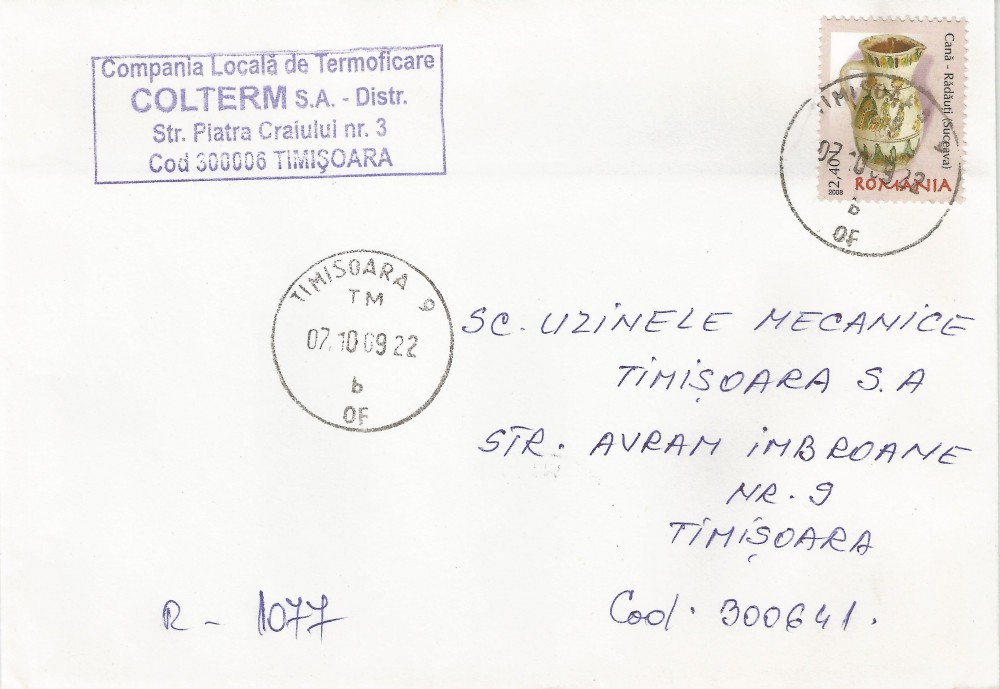 Compania Locală de Termoficare
COLTERM S.A. - Distr.
Str. Piatra Craiului nr. 3
Cod 300006 TIMIŞOARA
Cană - Rădăuţi (Suceava)
2,40 L
2008
ROMANIA
TIMISOARA 9
07.10 09 22
b
OF
TIMISOARA 9
TM
07.10 09 22
b
OF
SC. UZINELE MECANICE
TIMIŞOARA S.A
STR. AVRAM IMBROANE
NR. 9
TIMIŞOARA
Cod. 300641.
R - 1077